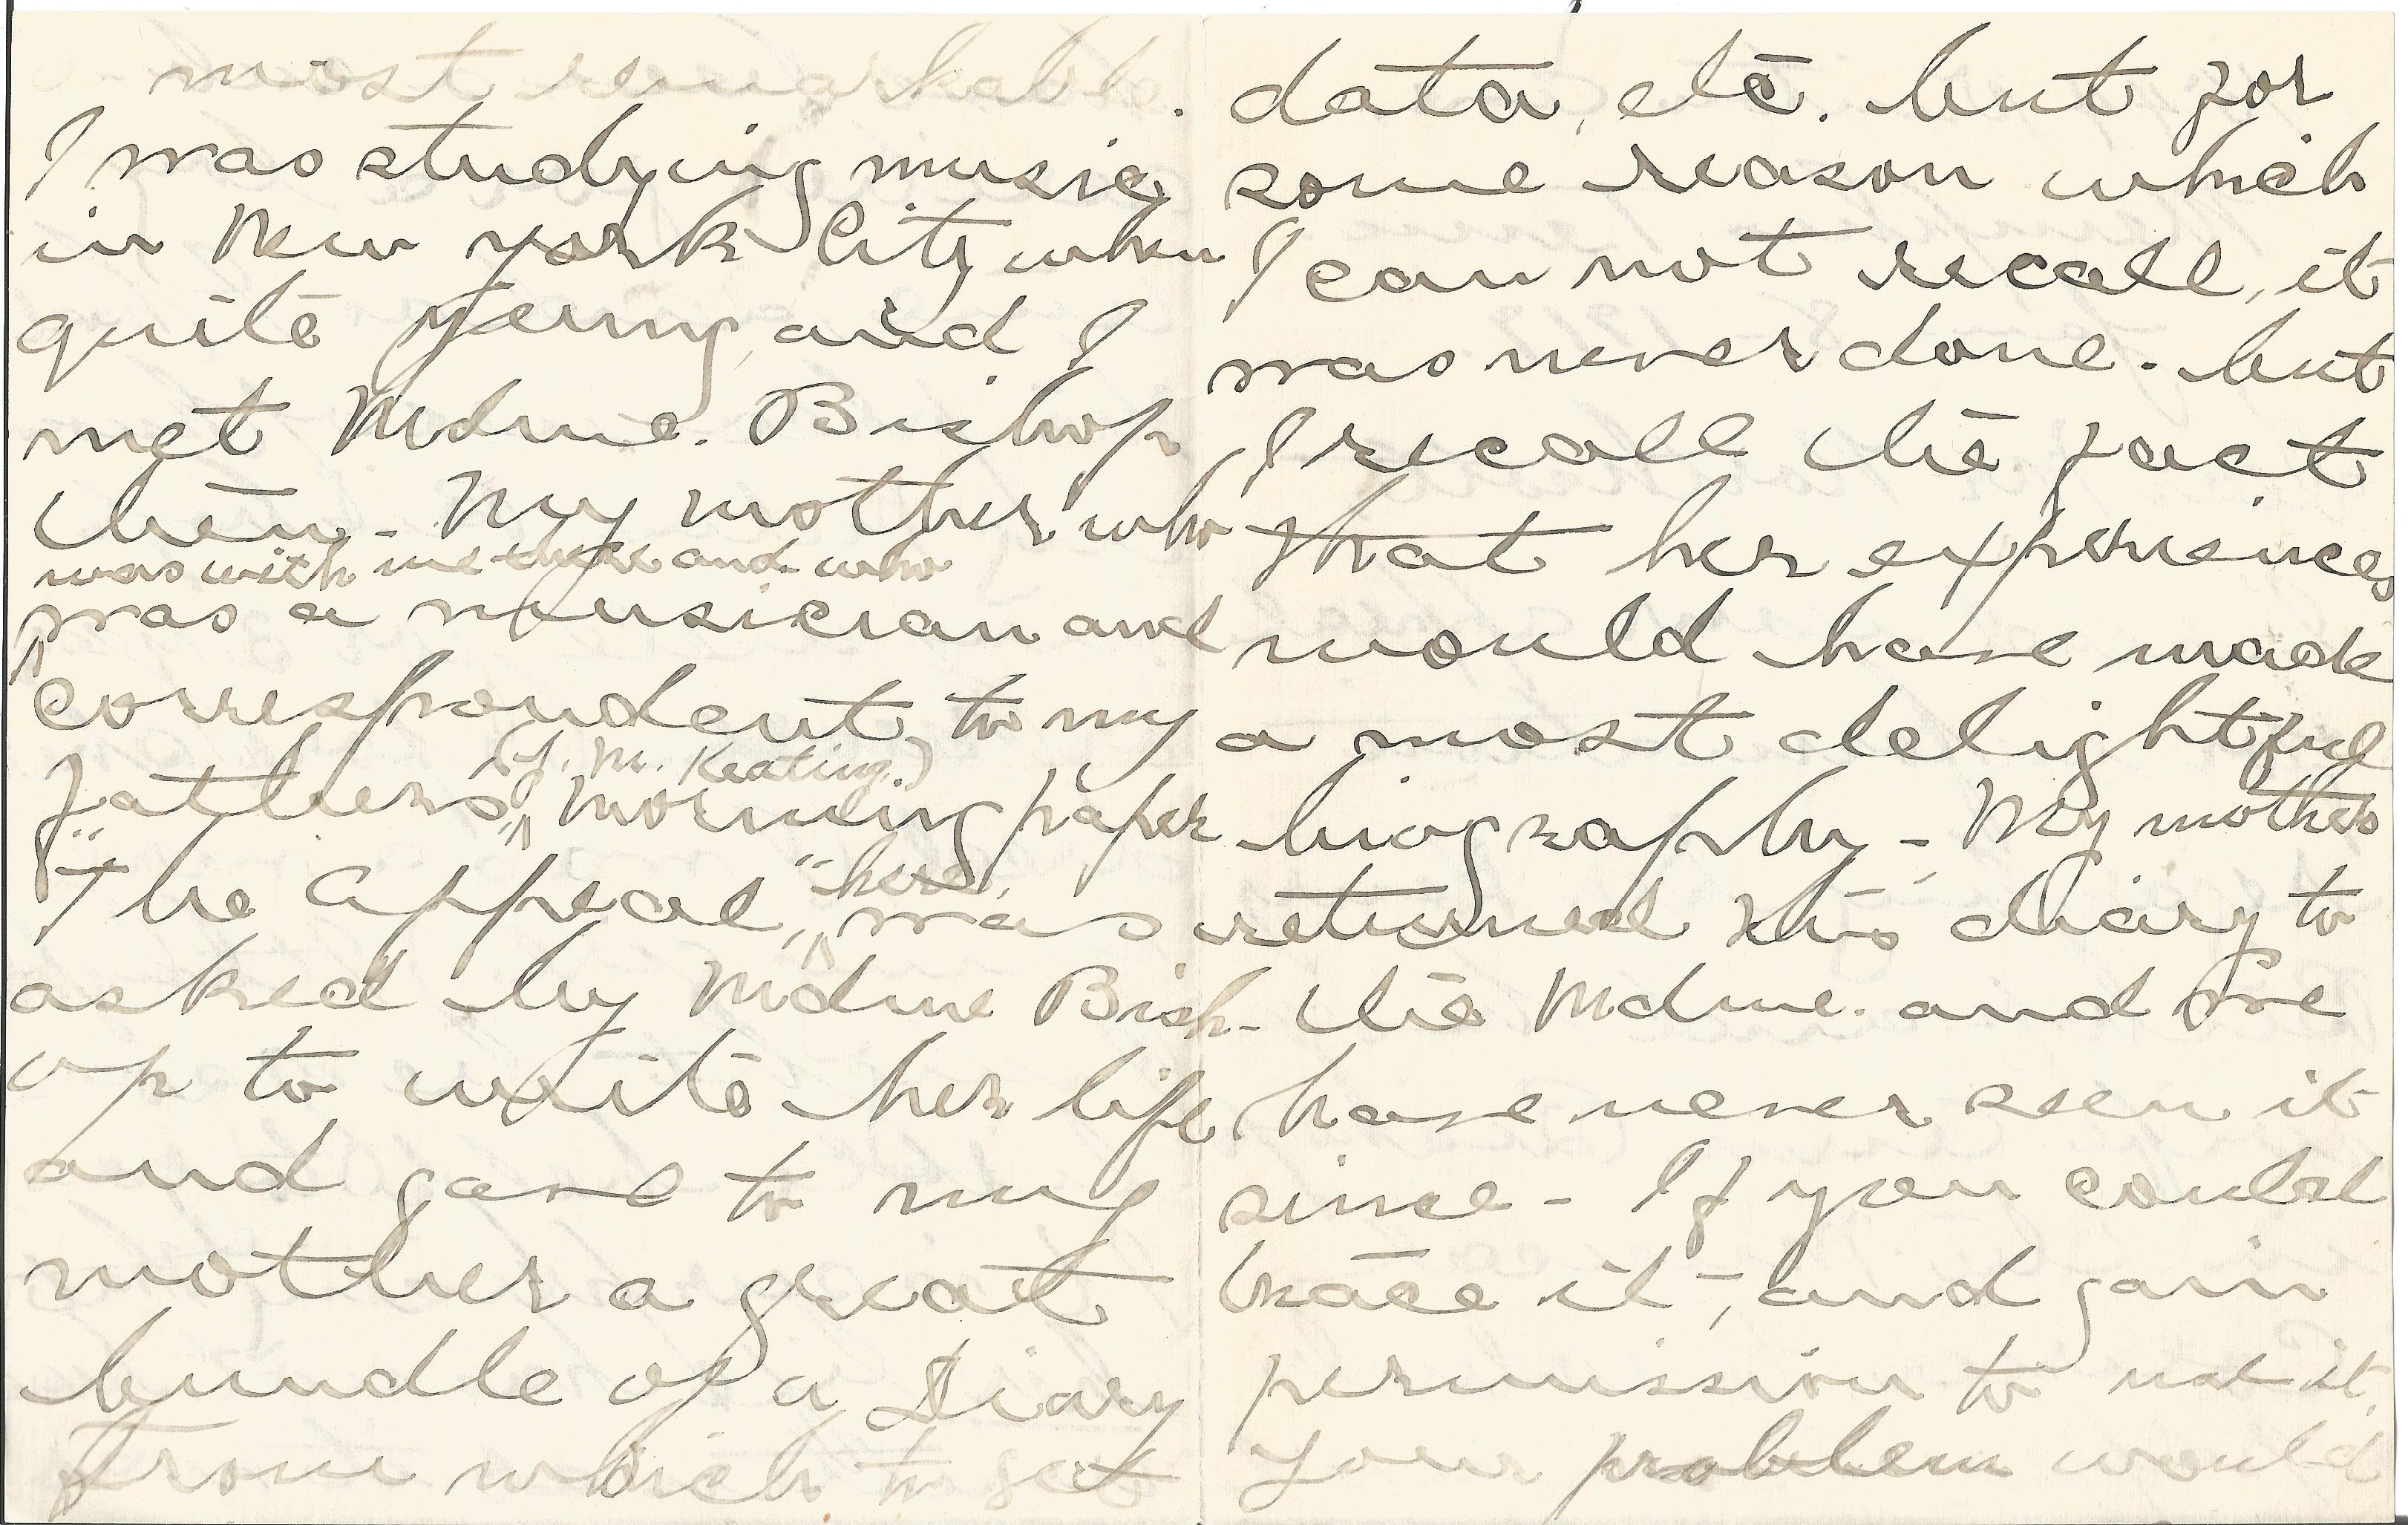 most remarkable.
I was studying music
in New York City when
quite young, and I
met Mdme. Bishop
then - My mother who
was with me there and who
was a musician and
correspondent to my
(J. M. Keating.)
father's, morning paper
"The Appeal," here,
was
asked by Mdme Bish-
op to write her life
and gave to my
mother a great
bundle of a Diary
from which to get
data, etc. but for
some reason which
I can not recall, it
was never done. but
I recall the fact
that her experiences
would have made
a most delightful
biography - My mother
returned this diary to
the Mdme. and we
have never seen it
since - If you could
trace it -, and gain
permission to use it,
your problem would